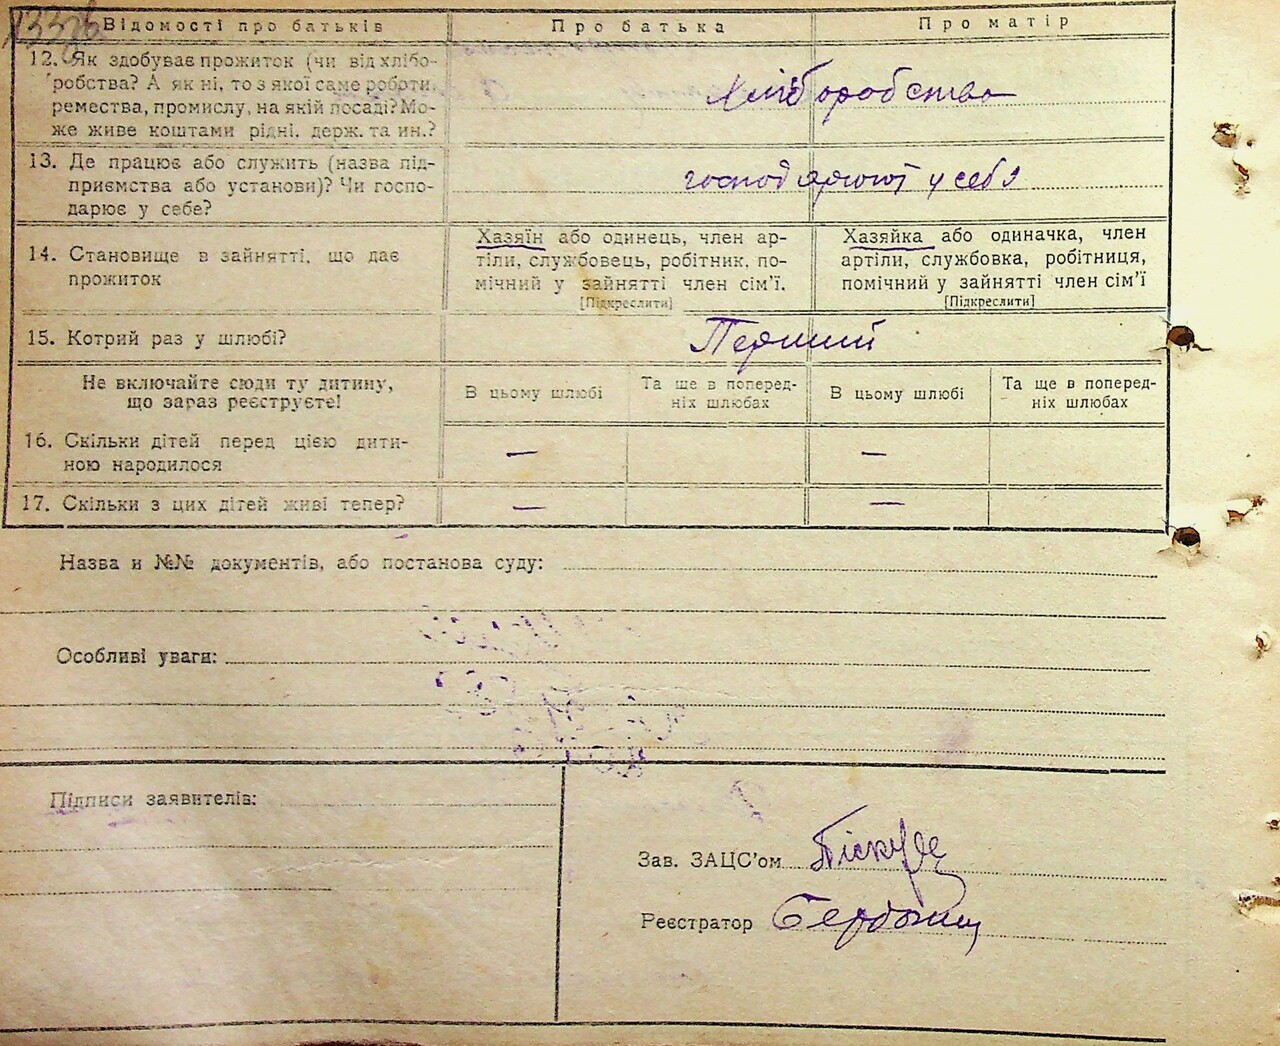 Відомості про батьків Про батька Про матір
12. Як здобуває прожиток (чи від хлібо-
робства? А як ні, то з якої саме роботи,
ремества, промислу, на якій посаді? Мо-
же живе коштами рідні, держ. та ин.?
хліборобство
13. Де працює або служить (назва під-
приємства або установи)? Чи госпо-
дарює у себе?
господарюют у себя
14. Становище в зайнятті, що дає
прожиток
Хазяїн або одинець, член ар-
тіли, службовець, робітник, по-
мічний у зайнятті член сім'ї.
[Підкреслити]
Хазяйка або одиначка, член
артіли, службовка, робітниця,
помічний у зайнятті член сім'ї
[Підкреслити]
15. Котрий раз у шлюбі?
Перший
Не включайте сюди ту дитину,
що зараз реєструєте!
В цьому шлюбі
Та ще в поперед-
ніх шлюбах
В цьому шлюбі
Та ще в поперед-
ніх шлюбах
16. Скільки дітей перед цією дити-
ною народилося
— —
17. Скільки з цих дітей живі тепер?
— —
Назва и №№ документів, або постанова суду:
Особливі уваги:
Підписи заявителів:
Зав. ЗАЦС'ом
Реєстратор